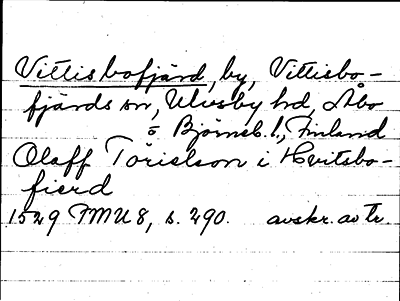 Vittisbofjärd, by, Vittisbo-
fjärds sn, Ulvsby hd, Åbo
o Björneb. l., Finland
Olaff Törielson i Hvitsbo-
fierd
1529 FMU 8, s. 290. avskr. av Tr.